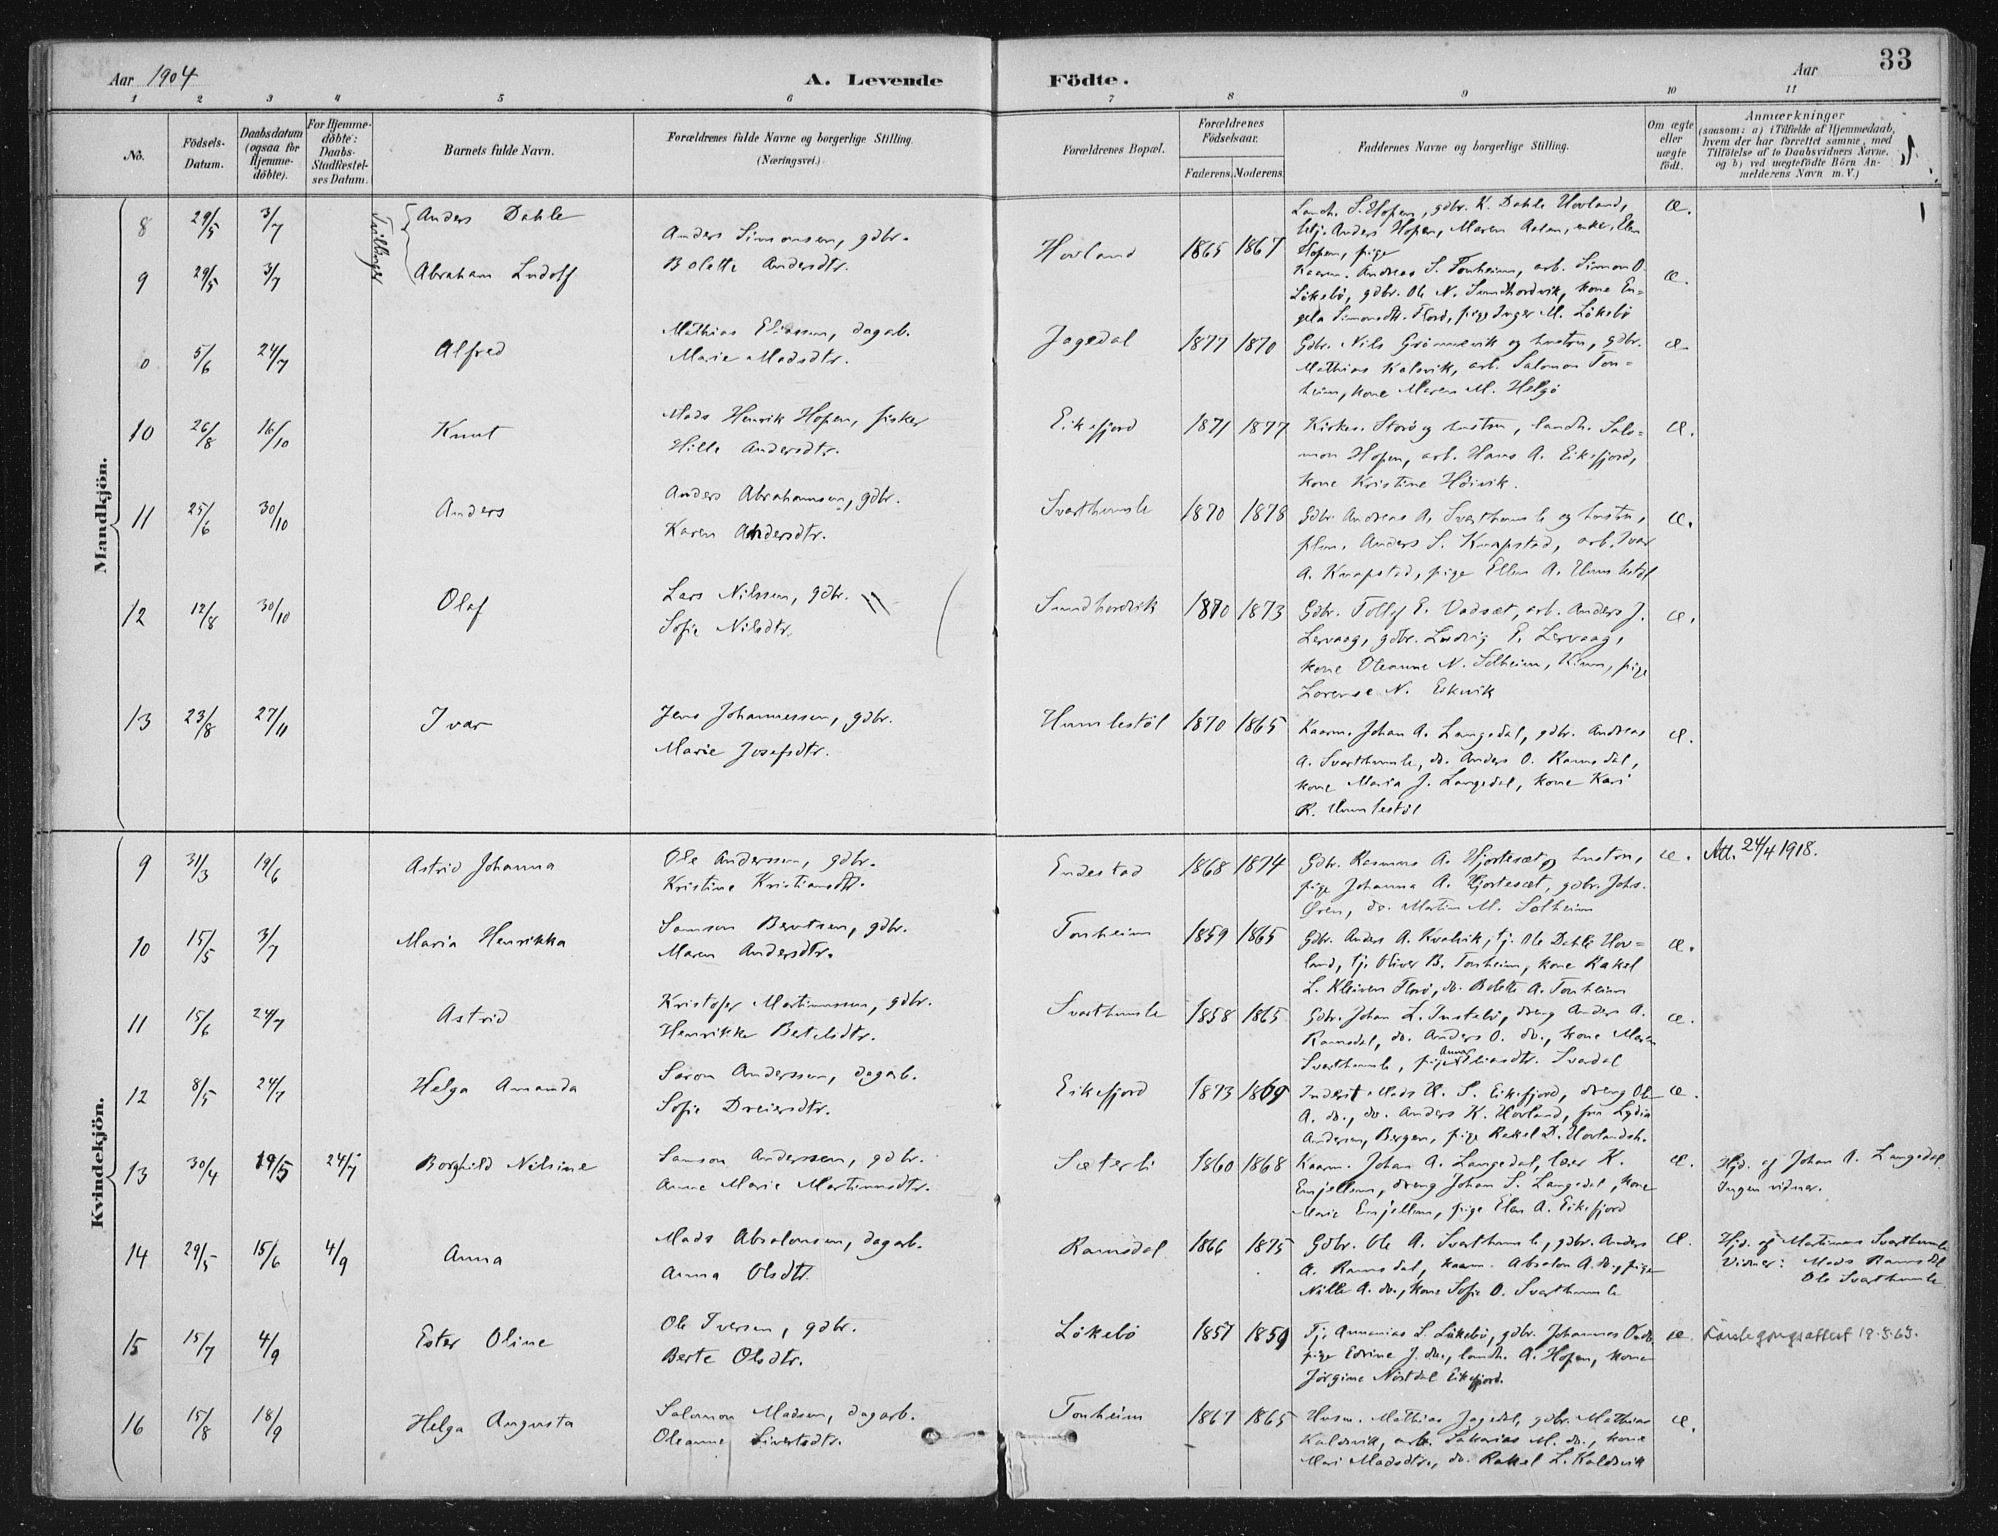 Aar 1904
A. Levende Födte.
Aar
33
1 2 3 4 5 6 7 8 9 10 11
No.
Födsels-Datum.
Daabsdatum (ogsaa for Hjemme-döbte).
For Hjemme-döbte: Daabs-Stadfæstelses Datum.
Barnets fulde Navn.
Forældrenes fulde Navne og borgerlige Stilling.
(Næringsvei.)
Forældrenes Bopæl.
Forældrenes Födselsaar.
Faderens. Moderens.
Faddernes Navne og borgerlige Stilling.
Om ægte eller uægte födt.
Anmærkninger
(saasom: a) i Tilfælde af Hjemmedaab,
hvem der har forrettet samme, med
Tilföielse af to Daabsvidners Navne,
og b) ved uægtefödte Börn An-
melderens Navn m. V.)
Mandkjön.
Tvillinger
8 29/5 3/7 Anders Dahle
Anders Simonsen, gdbr.
Bolette Andersdtr.
Hovland 1865 1867
Landh. S. Hopen, gdbr. K. Dahle Hovland,
Anders Hopen, Maren enke, Elen
Hopen, pige
æ.
9 29/5 3/7 Abraham Ludolf
Kaarm. Andreas S. Tonheim, arb. Simon O.
Løkebö, gdbr. Ole N. Sundhordvik, kone En-
gela Simonsdtr. Florö, pige Inger M. Løkebö
æ.
0 5/6 24/7 Alfred
Mathias Eliassen, dagarb.
Marie Madsdtr.
Jagedal 1877 1870
Gdbr. Nils Grönnevik og hustru, gdbr.
Mathias Kalsvik, arb. Salomon Ton-
heim, kone Maren M. Helgö
æ
10 26/8 16/10 Knut
Mads Henrik Hopen, fisker
Hille Andersdtr.
Eikefjord 1871 1877
Kirkes. Storö og hustru, landh. Salo-
mon Hopen, arb. Hans A. Eikefjord,
kone Kristine Höivik.
æ.
11 25/6 30/10 Anders
Anders Abrahamsen, gdbr.
Karen Andersdtr.
Svarthumle 1870 1878
Gdbr. Andreas A. Svarthumle og hustru,
Anders S. Knapstad, arb. Ivar
A. Knapstad, pige Ellen A. Humlestöl
æ.
12 12/8 30/10 Olaf
Lars Nilssen, gdbr.
Sofie Nilsdtr.
Sundhordvik 1870 1873
Gdbr. Tollef E. Vadsæt, arb. Anders J.
Lervaag, gdbr. Ludvig E. Lervaag,
kone Oleanne N. Solheim, Kinn, pige
Lorense N. Eikevik
æ.
13 23/8 27/11 Ivar
Jens Johannessen, gdbr.
Marie Josefsdtr.
Humlestöl 1870 1865
Kaarm. Johan A. Langedal, gdbr. Andreas
A. Svarthumle, do. Anders O. Ramsdal,
kone Maria J. Langedal, kone Kari
R. Humlestöl
æ.
Kvindekjön.
9 31/3 19/6 Astrid Johanna
Ole Anderssen, gdbr.
Kristine Kristiansdtr.
Endestad 1868 1874
Gdbr. Rasmus A. Hjortesæt og hustru,
pige Johanna A. Hjortesæt, gdbr. Johs.
Ören, do. Martin M. Solheim
æ.
Att. 24/4 1918.
10 15/5 3/7 Maria Henrikka
Samson Berntsen, gdbr.
Maren Andersdtr.
Tonheim 1859 1865
Gdbr. Anders A. Kvalvik, tj. Ole Dahle Hov-
land, tj. Oliver B. Tonheim, kone Rakel
L. Kleiven Florö, do. Bolette A. Tonheim
æ.
11 15/6 24/7 Astrid
Kristofer Martinussen, gdbr.
Henrikke Bertelsdtr.
Svarthumle 1858 1865
Gdbr. Johan L. Instebö, dreng Anders A.
Ramsdal, do. Anders O. do., kone Maren
Svarthumle, pige Anna Eliasdtr. Svardal
æ.
12 8/5 24/7 Helga Amanda
Saron Anderssen, dagarb.
Sofie Dreiersdtr.
Eikefjord 1873 1869
Inderst Mads A. S. Eikefjord, dreng Ole
A. do., do. Anders K. Hovland, frü Lydia
Andersen, Bergen, pige Rakel D. Hovlandsh.
æ.
13 30/4 19/5 24/7 Borghild Nilsine
Samson Anderssen, gdbr.
Anne Marie Martinusdtr.
Sæterli 1860 1868
Kaarm. Johan A. Langedal, lærer K.
Emjellem, dreng Johan S. Langedal, kone
Marie Emjellem, pige Elen A. Eikefjord
æ.
Hjd. af Johan A. Langedal.
Ingen vidner.
14 29/5 15/6 4/9 Anna
Mads Absalonsen, dagarb.
Anna Olsdtr.
Ramsdal 1866 1875
Gdbr. Ole A. Svarthumle, gdbr. Anders
A. Ramsdal, kaarm. Absalon A. do., pige
Nille A. do., kone Sofie O. Svarthumle
æ.
Hjd. af Martinus Svarthumle
Vidner: Mads Ramsdal
Ole Svarthumle
15 15/7 4/9 Ester Oline
Ole Iversen, gdbr.
Berte Olsdtr.
Løkebö 1857 1859
Tj. Annanias S. Løkebö, gdbr. Johannes
pige Edvine J. do., landh. A. Hopen, kone
Jörgine Nöstdal Eikefjord.
æ.
16 15/8 18/9 Helga Augusta
Salomon Madsen, dagarb.
Oleanne Sivertsdtr.
Tonheim 1867 1865
Husm. Mathias Jagedal, gdbr. Mathias
Kaldsvik, arb. Sakarias M. do., kone
Mari Madsdtr., do. Rakel L. Kaldsvik
æ.